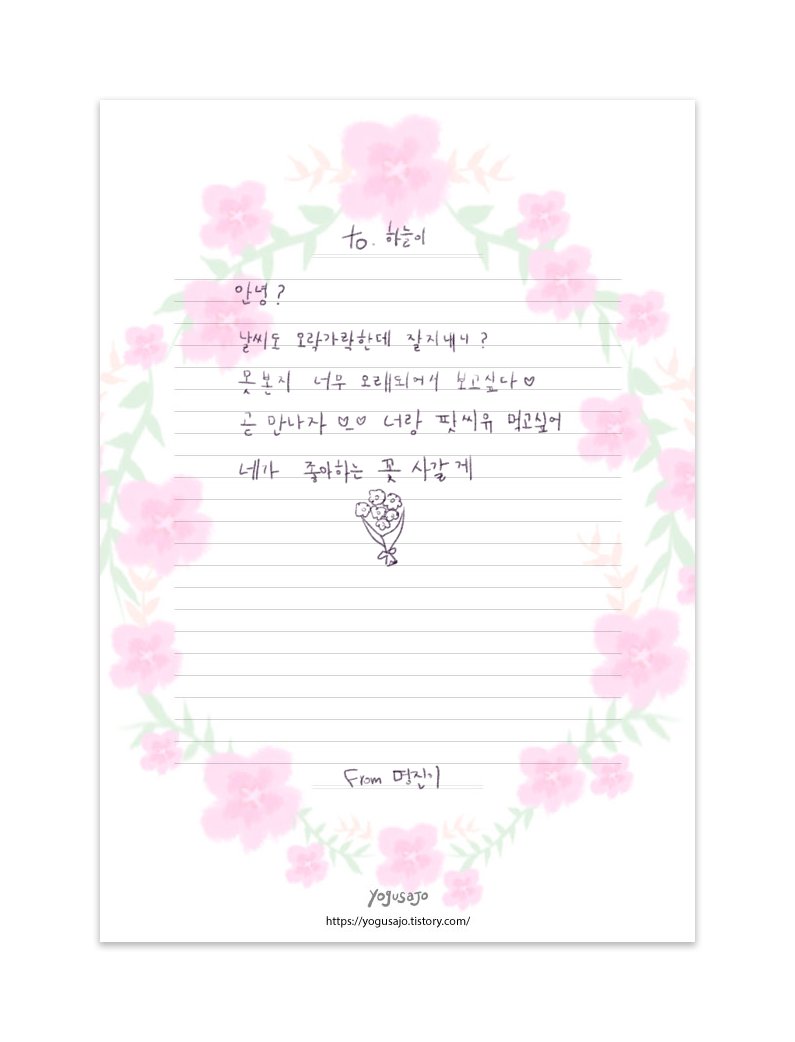 to. 하늘이
안녕?
날씨도 오락가락한데 잘지내니?
못본지 너무 오래되어서 보고싶다♡
곧 만나자 ♡♡ 너랑 팟씨유 먹고싶어
네가 좋아하는 꽃 사갈게
From 명진이
yogusajo
https://yogusajo.tistory.com/